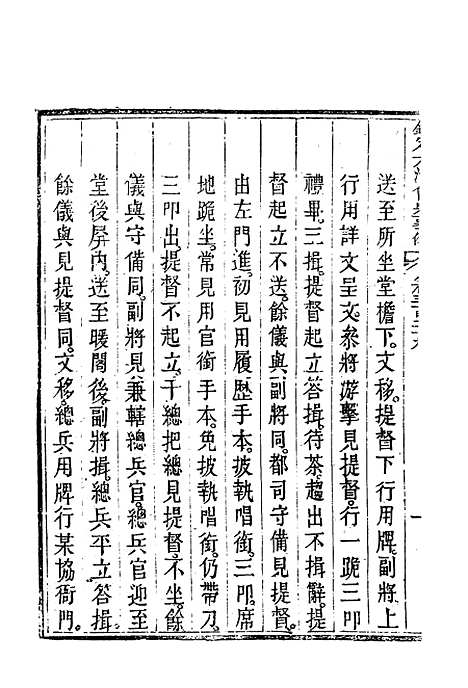 送至所坐堂檐下。文移。提督下行用牌。副將上
行用詳文呈文。叅將游擊見提督。行一跪三叩
禮畢。三揖。提督起立答揖。待茶趨出不揖辭。提
督起立不送。餘儀與副將同。都司守備見提督。
由左門進。初見用履歷手本。披執唱銜。三叩。席
地跪坐。常見用官銜手本。免披執唱銜。仍帶刀。
三叩出。提督不起立。千總把總見提督。不坐。餘
儀與守備同。副將見兼轄總兵官。總兵官迎至
堂後屏內。送至暖閣後。副將揖。總兵平立。答揖。
餘儀與見提督同。文移。總兵用牌行某協衙門。